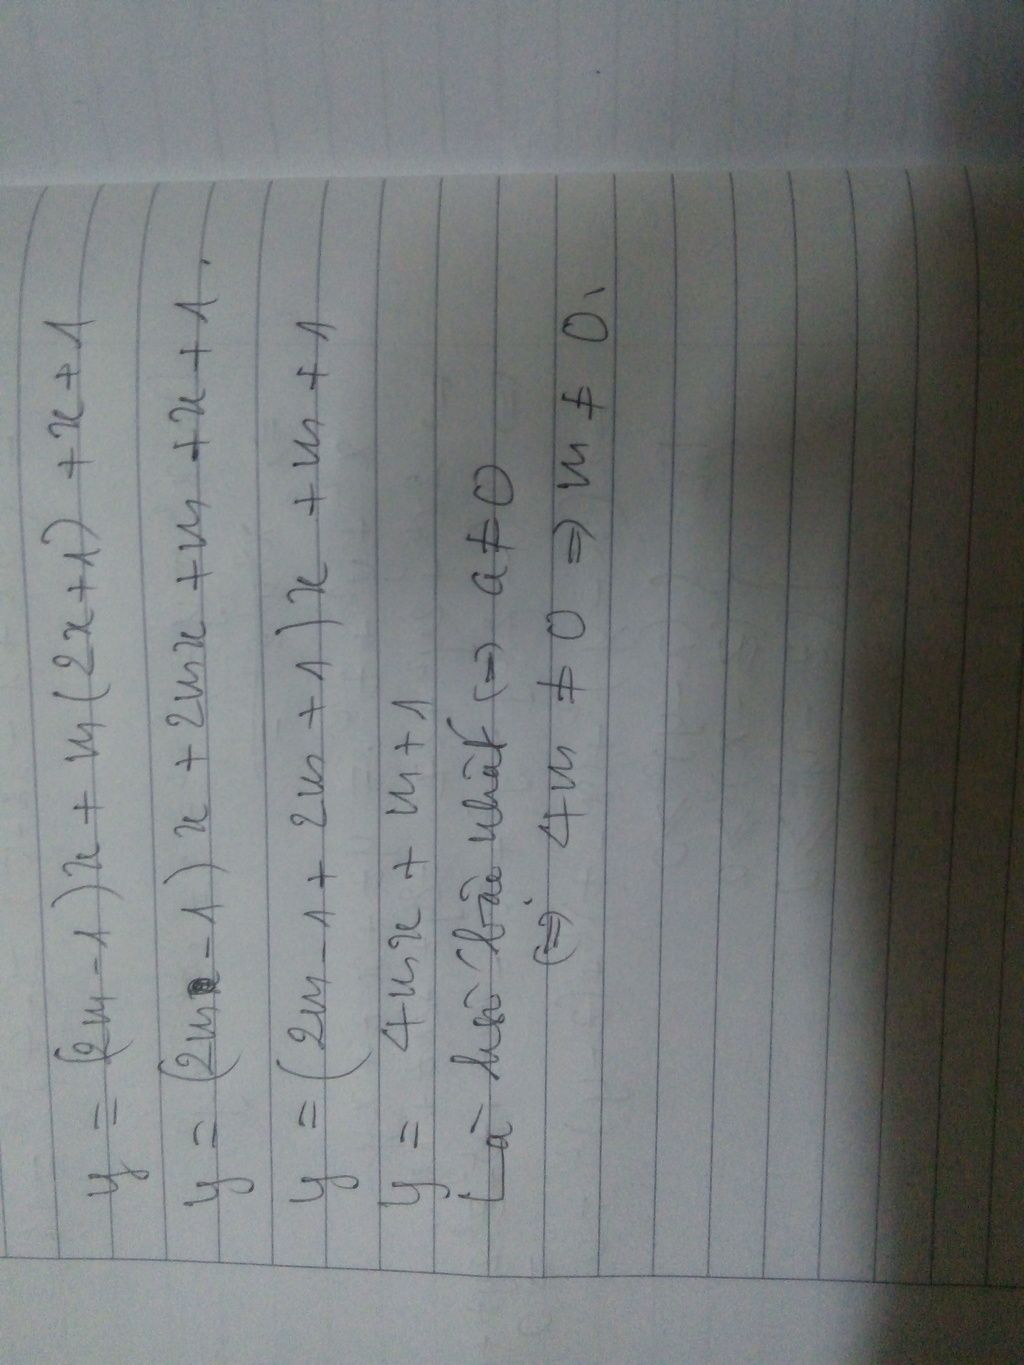 y = (2m - 1)x + m(2x+1) + x + 1
y = (2m - 1)x + 2mx + m + x + 1.
y = (2m - 1 + 2m + 1)x + m + 1
y = 4mx + m + 1
Là hsố bậc nhất <=> a ≠ 0
<=> 4m ≠ 0 => m ≠ 0.